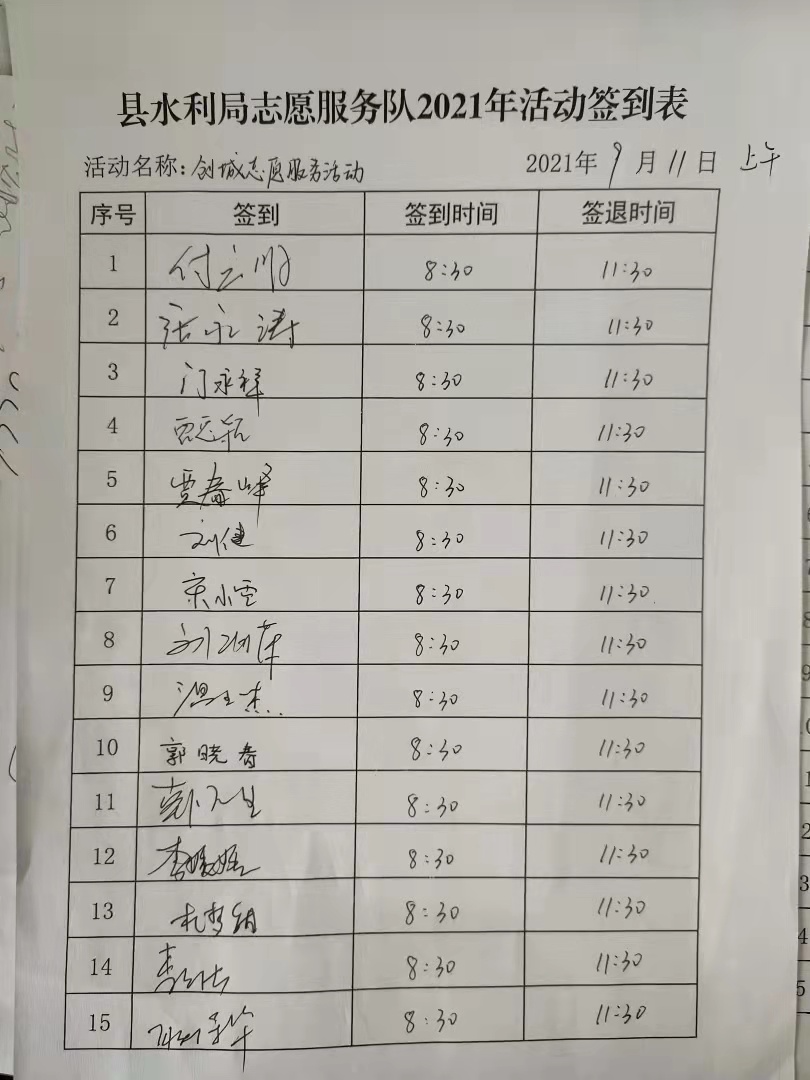 县水利局志愿服务队2021年活动签到表
活动名称:创城志愿服务活动 2021年9月11日 上午
序号 签到 签到时间 签退时间
1 8:30 11:30
2 张永涛 8:30 11:30
3 门永祥 8:30 11:30
4 8:30 11:30
5 贾春峰 8:30 11:30
6 刘健 8:30 11:30
7 宋小雪 8:30 11:30
8 8:30 11:30
9 8:30 11:30
10 郭晓春 8:30 11:30
11 8:30 11:30
12 8:30 11:30
13 8:30 11:30
14 8:30 11:30
15 8:30 11:30